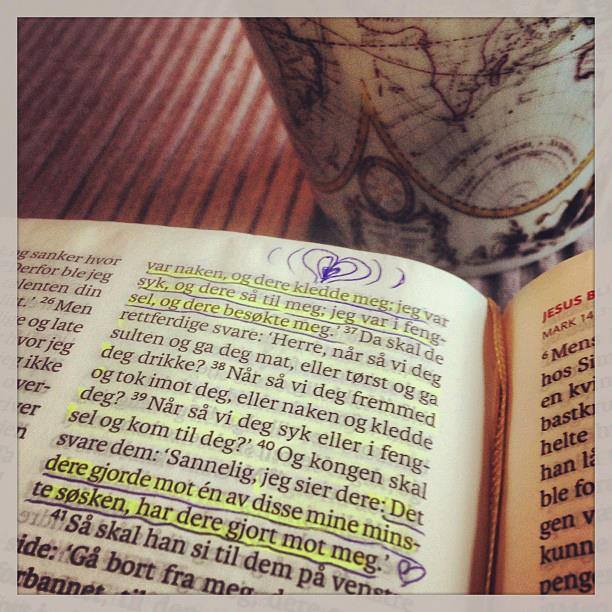 og sanker hvor
erfor ble jeg
enten din
t.' 26 Men
e og late
vor jeg
ikke
ver-
ver
n
var naken, og dere kledde meg; jeg var
syk, og dere så til meg; jeg var i feng-
sel, og dere besøkte meg.' 37 Da skal de
rettferdige svare: 'Herre, når så vi deg
sulten og ga deg mat, eller tørst og ga
deg drikke? 38 Når så vi deg fremmed
og tok imot deg, eller naken og kledde
deg? 39 Når så vi deg syk eller i feng-
sel og kom til deg?' 40 Og kongen skal
svare dem: 'Sannelig, jeg sier dere: Det
dere gjorde mot én av disse mine mins-
te søsken, har dere gjort mot meg.'
41 Så skal han si til dem på venstre
ide: 'Gå bort fra meg, de
rbannet, til de
JESUS B
MARK 14
6 Mens
hos Si
en kvi
bastkr
helte
han lå
ble fo
gen v
kunn
peng